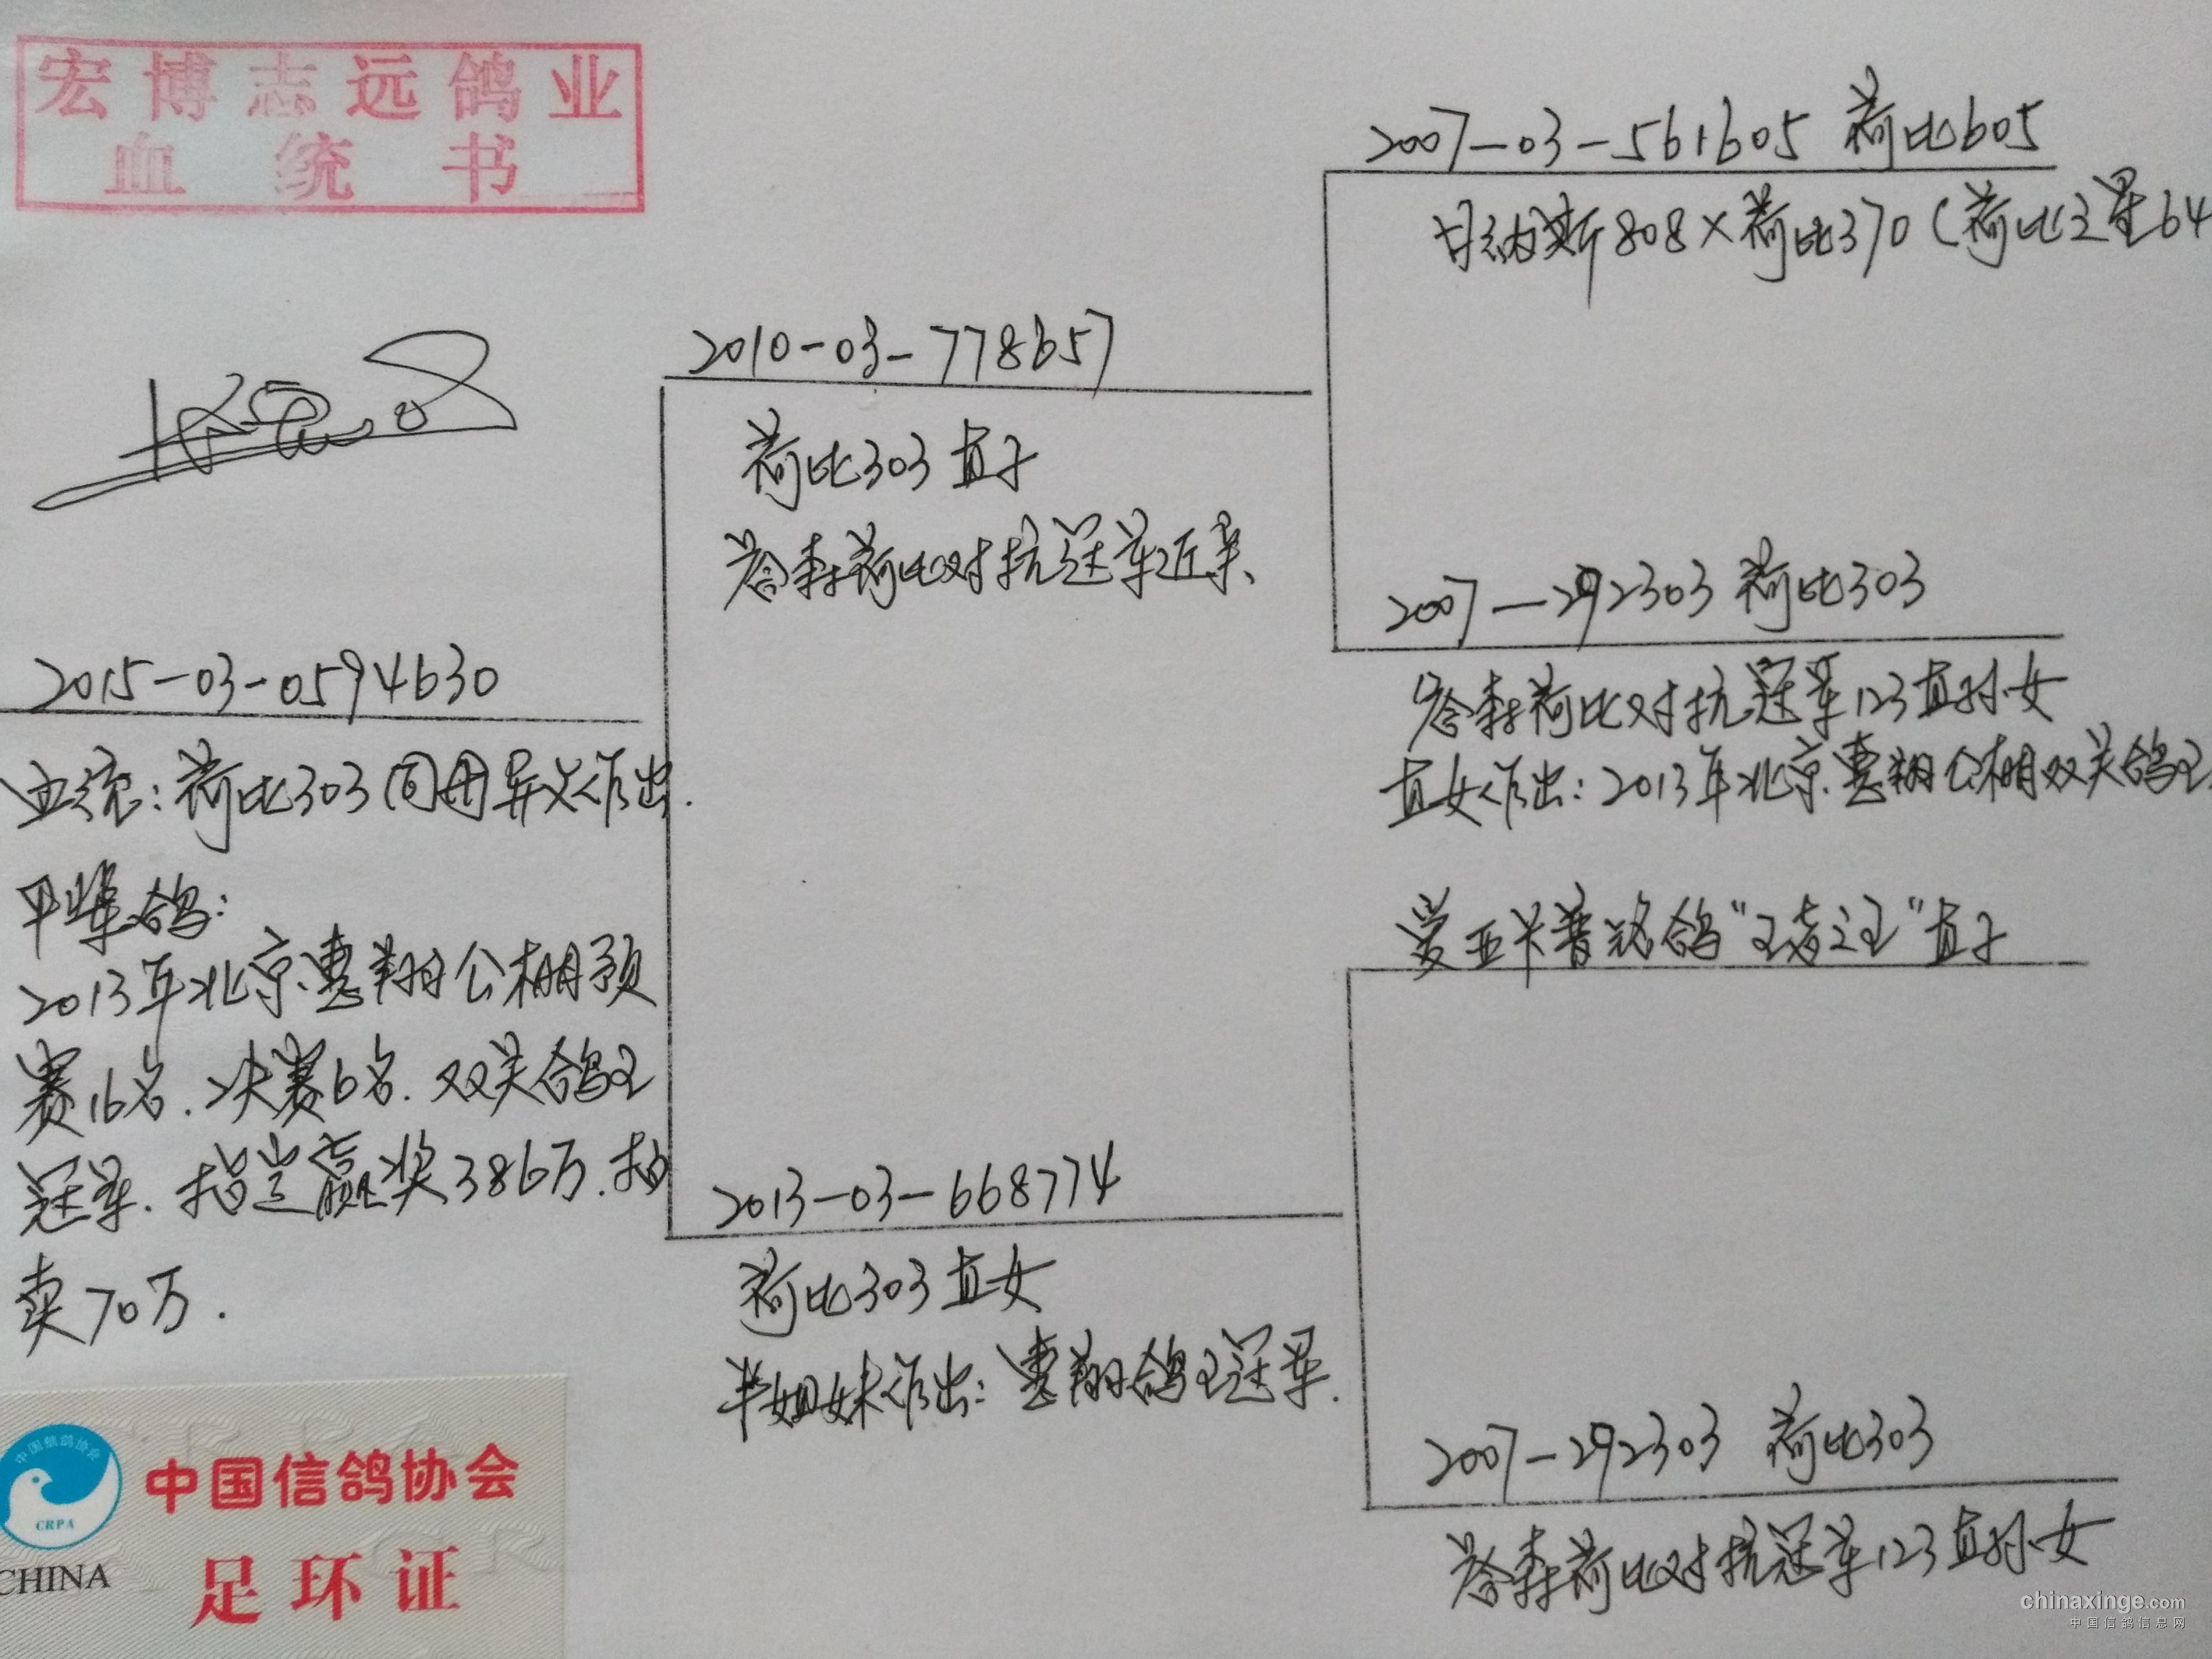 宏博志远鸽业
血统书
2015-03-0594630
血统：荷比303同母异父作出.
平辈鸽：
2013年北京惠翔公棚预
赛16名.决赛6名.双关鸽王
冠军.指定赢奖386万.拍
卖70万.
2010-03-778657
荷比303直子
詹森荷比对抗冠军近亲、
2013-03-668774
荷比303直女
半姐妹作出：惠翔鸽王冠军.
2007-03-561605 荷比605
甘纳斯808×荷比370（荷比之星64
2007-292303 荷比303
詹森荷比对抗冠军123直孙女
直女作出：2013年北京惠翔公棚双关鸽王
爱亚卡普铭鸽“王者之王”直子
2007-292303 荷比303
詹森荷比对抗冠军123直孙女
中国信鸽协会
CRPA
CHINA
中国信鸽协会
足环证
chinaxinge.com
中国信鸽信息网